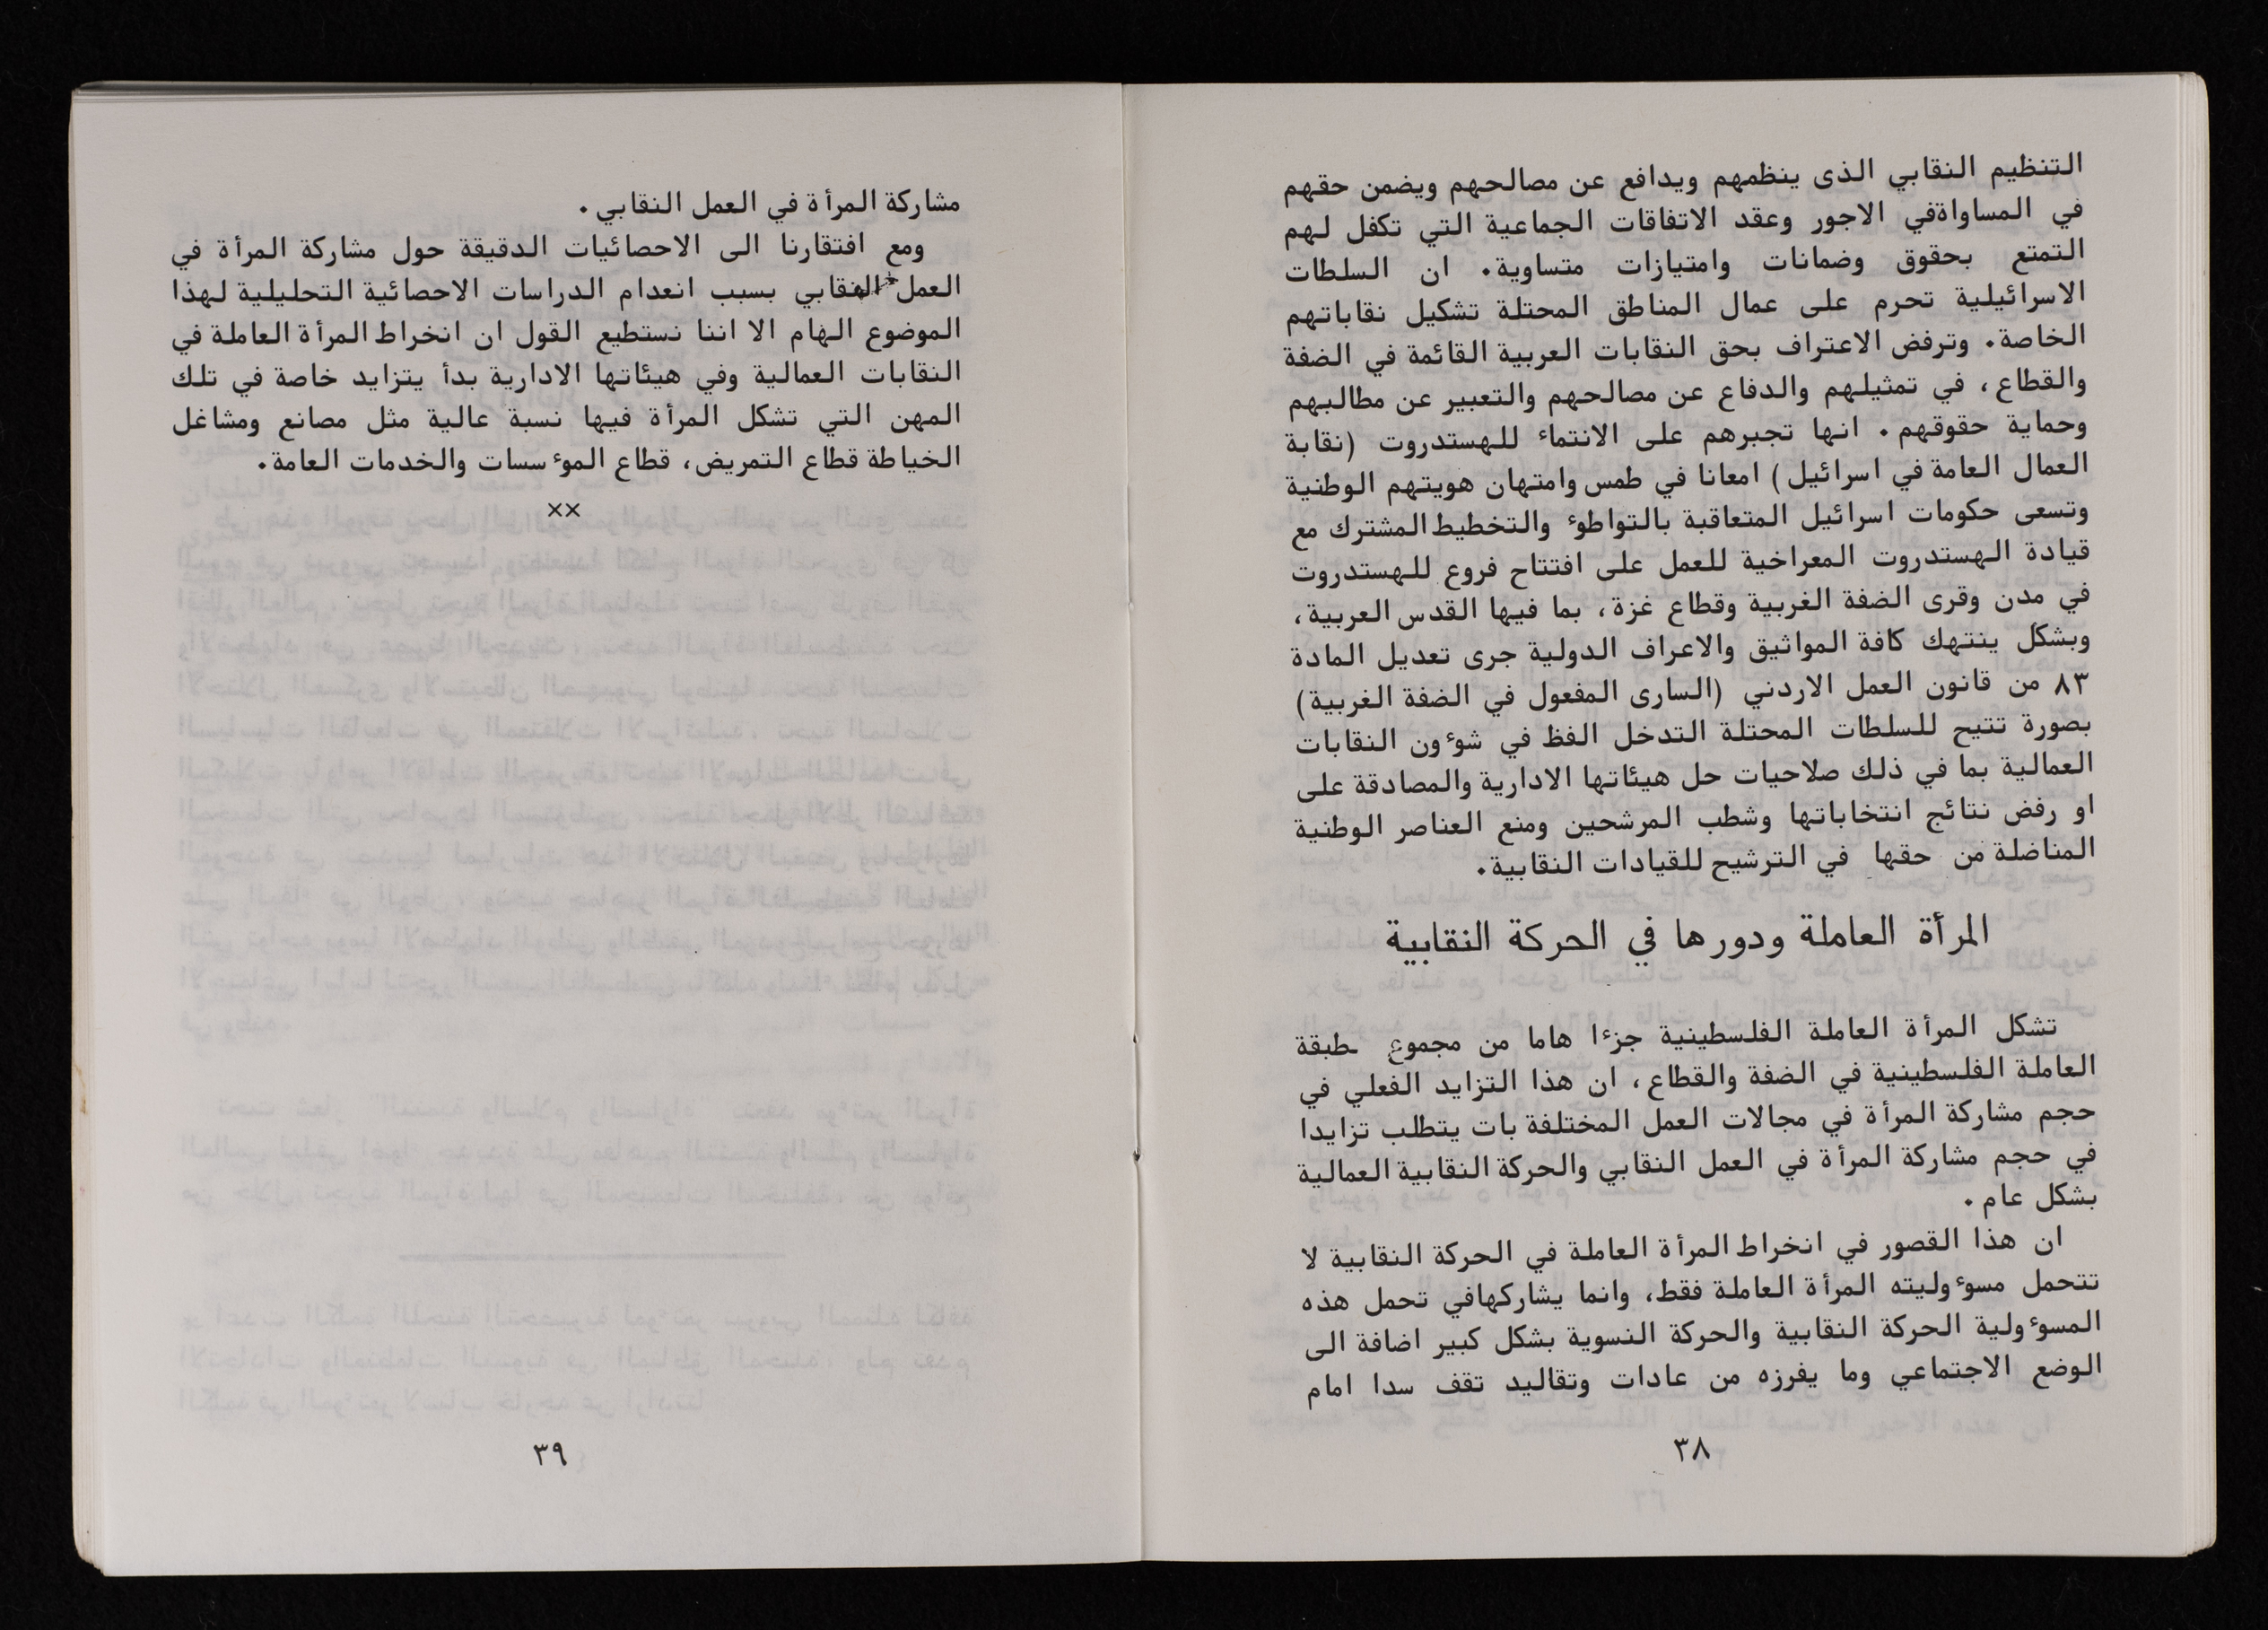 التنظيم النقابي الذى ينظمهم ويدافع عن مصالحهم ويضمن حقهم
في المساواةفي الاجور وعقد الاتفاقات الجماعية التي تكفل لهم
التمتع بحقوق وضمانات وامتيازات متساوية. ان السلطات
الاسرائيلية تحرم على عمال المناطق المحتلة تشكيل نقاباتهم
الخاصة. وترفض الاعتراف بحق النقابات العربية القائمة في الضفة
والقطاع، في تمثيلهم والدفاع عن مصالحهم والتعبير عن مطالبهم
وحماية حقوقهم. انها تجبرهم على الانتماء للهستدروت (نقابة
العمال العامة في اسرائيل) امعانا في طمس وامتهان هويتهم الوطنية
وتسعى حكومات اسرائيل المتعاقبة بالتواطوء والتخطيط المشترك مع
قيادة الهستدروت المعراخية للعمل على افتتاح فروع للهستدروت
في مدن وقرى الضفة الغربية وقطاع غزة، بما فيها القدس العربية،
وبشكل ينتهك كافة المواثيق والاعراف الدولية جرى تعديل المادة
٨٣ من قانون العمل الاردني (السارى المفعول في الضفة الغربية)
بصورة تتيح للسلطات المحتلة التدخل الفظ في شوءون النقابات
العمالية بما في ذلك صلاحيات حل هيئاتها الادارية والمصادقة على
او رفض نتائج انتخاباتها وشطب المرشحين ومنع العناصر الوطنية
المناضلة من حقها في الترشيح للقيادات النقابية.
المرأة العاملة ودورها في الحركة النقابية
تشكل المرأة العاملة الفلسطينية جزءا هاما من مجموع طبقة
العاملة الفلسطينية في الضفة والقطاع، ان هذا التزايد الفعلي في
حجم مشاركة المرأة في مجالات العمل المختلفة بات يتطلب تزايدا
في حجم مشاركة المرأة في العمل النقابي والحركة النقابية العمالية
بشكل عام.
ان هذا القصور في انخراط المرأة العاملة في الحركة النقابية لا
تتحمل مسوءوليته المرأة العاملة فقط، وانما يشاركهافي تحمل هذه
المسوءولية الحركة النقابية والحركة النسوية بشكل كبير اضافة الى
الوضع الاجتماعي وما يفرزه من عادات وتقاليد تقف سدا امام
٣٨
مشاركة المرأة في العمل النقابي.
ومع افتقارنا الى الاحصائيات الدقيقة حول مشاركة المرأة في
العمل النقابي بسبب انعدام الدراسات الاحصائية التحليلية لهذا
الموضوع الهام الا اننا نستطيع القول ان انخراط المرأة العاملة في
النقابات العمالية وفي هيئاتها الادارية بدأ يتزايد خاصة في تلك
المهن التي تشكل المرأة فيها نسبة عالية مثل مصانع ومشاغل
الخياطة قطاع التمريض، قطاع الموءسسات والخدمات العامة.
××
٣٩